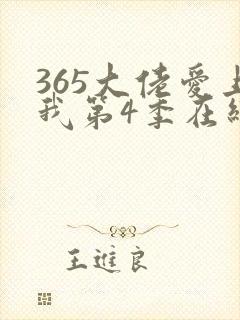 365大佬爱
我第4季在
王進良